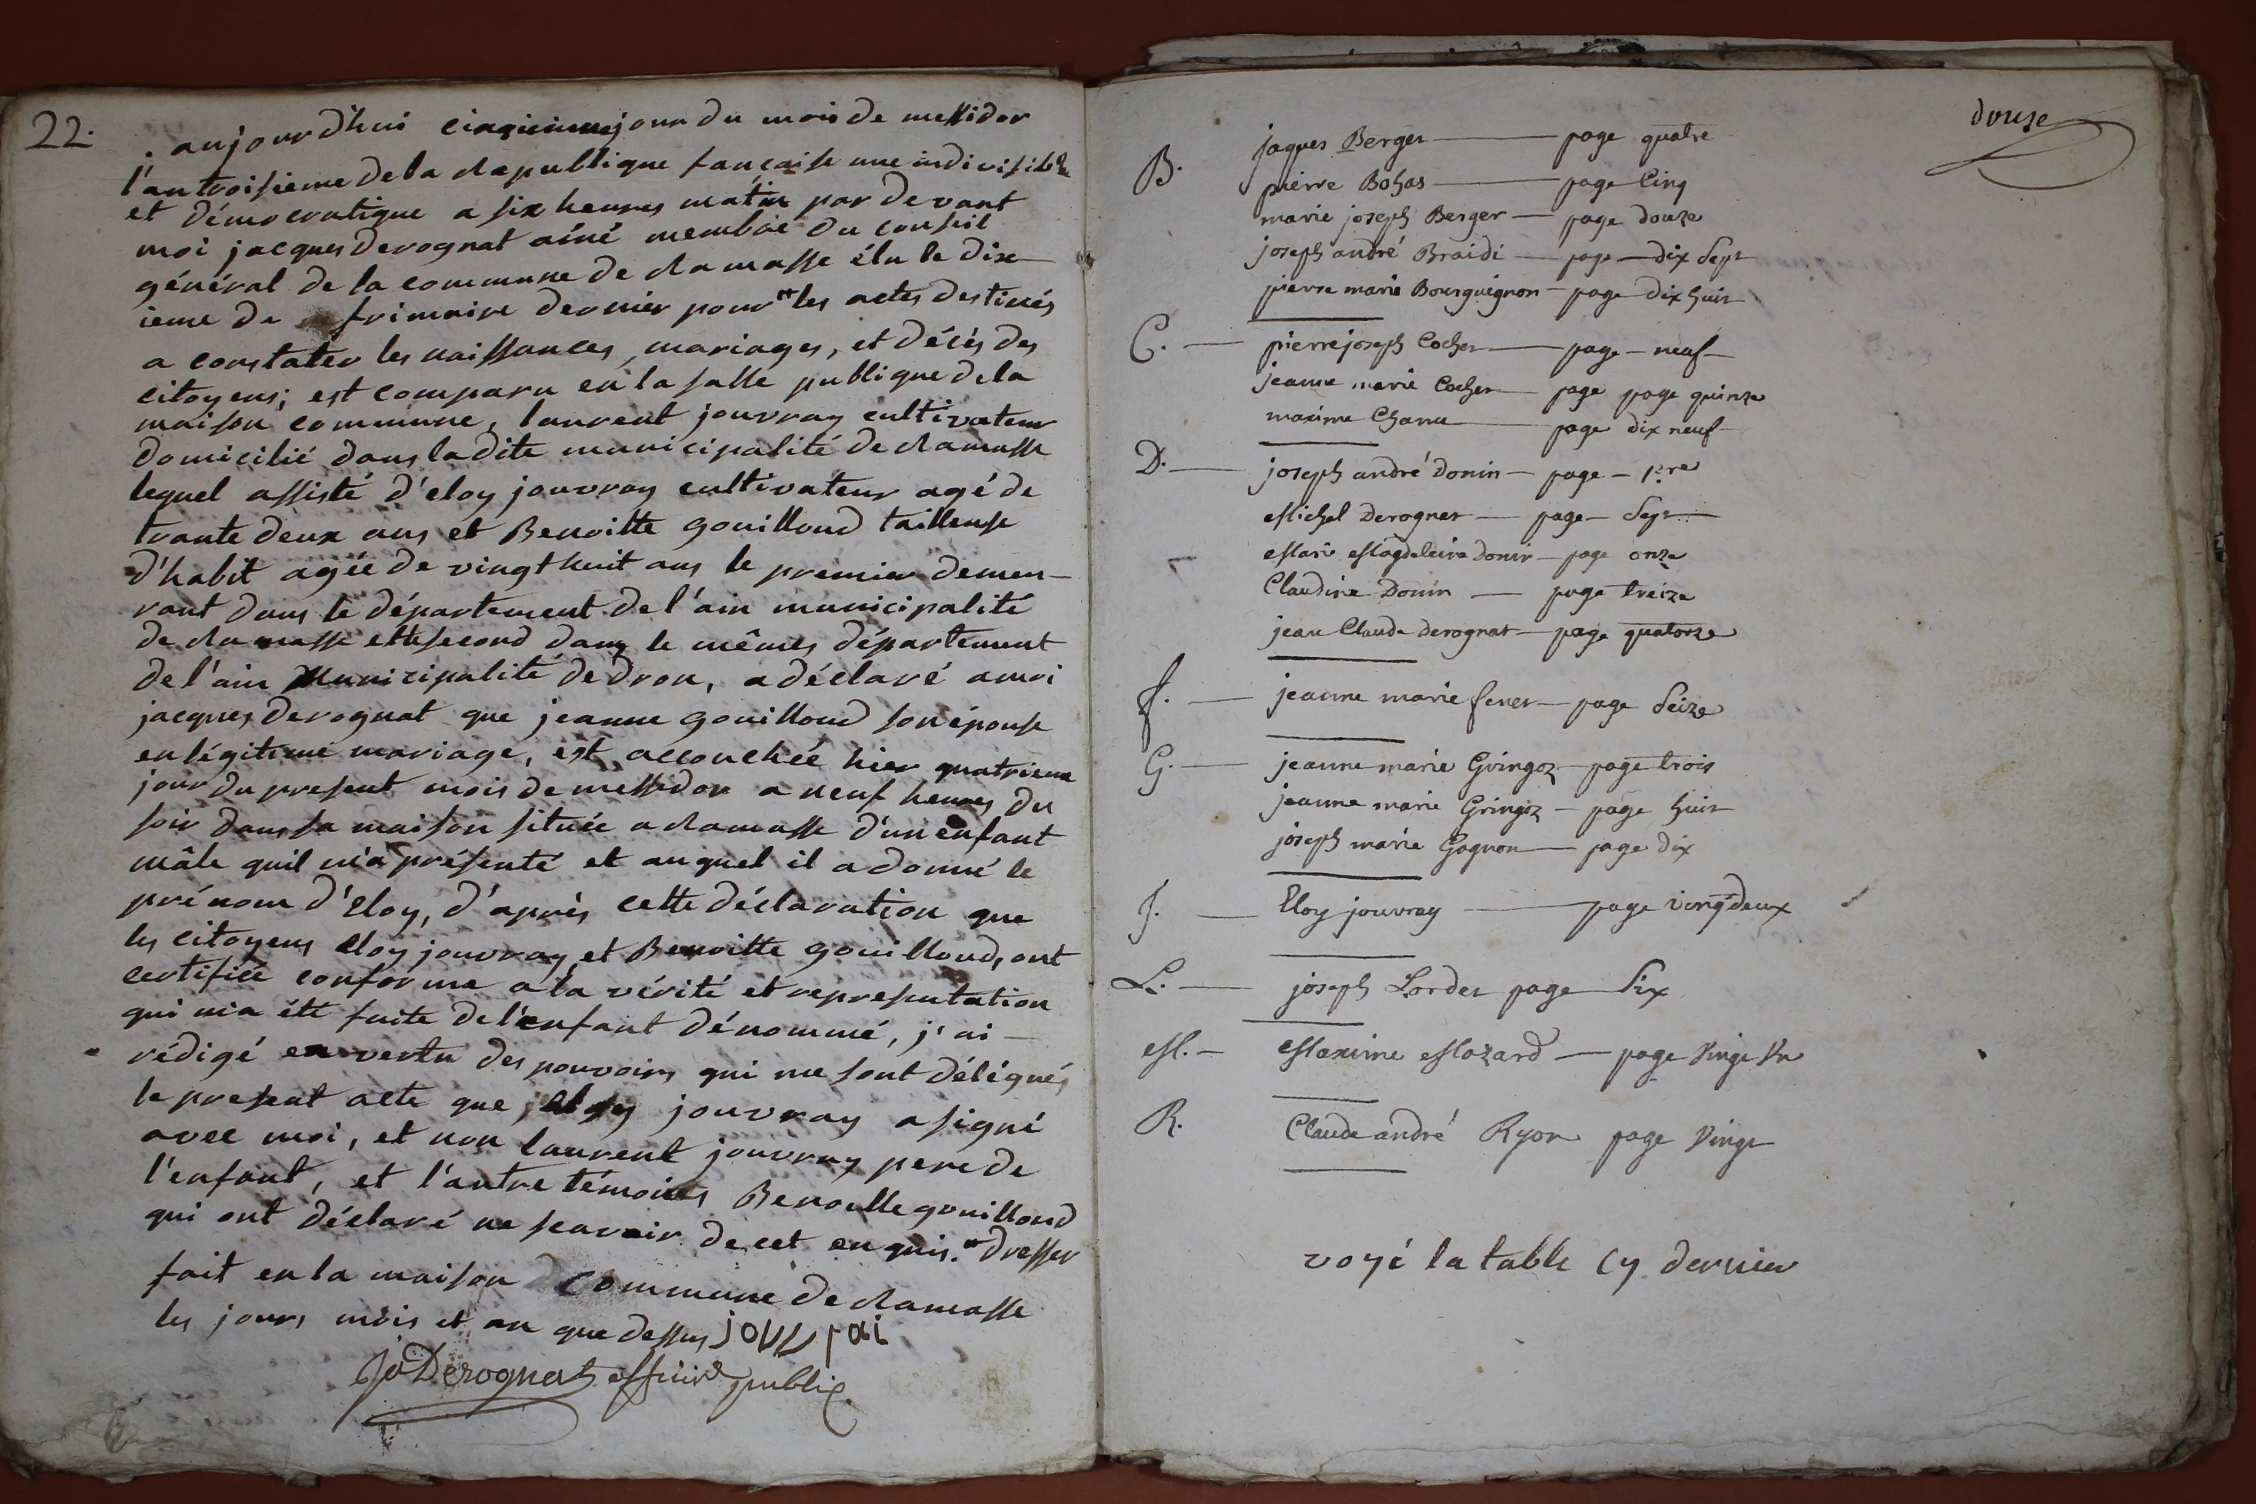 22.
aujourd'hui cinquieme jour du mois de messidor
l'an troisieme de la Republique française une indivisible
et démocratique a six heures matin par devant
moi jacques derognat ainé membre du conseil
général de la commune de Ramasse élu le dix
ieme de frimaire dernier pour les actes destinés
a constater les naissances, mariages, et décès des
citoyens; est comparu en la salle publique de la
maison commune, laurent jouvray cultivateur
domicilié dans ladite municipalité de Ramasse
lequel assisté d'eloy jouvray cultivateur agé de
trante deux ans et Benoitte gouilloud tailleuse
d'habit agée de vingt huit ans le premier demeu-
rant dans le département de l'ain municipalité
de Ramasse et le second dans le mêmes département
de l'ain Municipalité de dron, a déclaré a moi
jacques derognat que jeanne gouilloud son épouse
en légitime mariage, est accouchée hier quatrieme
jour du present mois de messidor a neuf heures du
soir dans sa maison située a Ramasse d'un enfant
mâle quil m'a présenté et auquel il a donné le
prénom d'Eloy, d'après cette déclaration que
les citoyens eloy jouvray et Benoitte gouilloud, ont
certifiée conforme a la vérité et representation
qui m'a été faite de l'enfant dénommé, j'ai
rédigé en vertu des pouvoirs qui me sont délégués
le present acte que eloy jouvray a signé
avec moi, et non laurent jouvray pere de
l'enfant, et l'autre témoins Benoitte gouilloud
qui ont déclaré ne scavoir de cet enquis. dresser
fait en la maison commune de Ramasse
les jours mois et an que dessus jouvrai
Derognat officier public
douze
B. jaques Berger page quatre
pierre Bohas page Cinq
marie joseph Berger page douze
joseph andré Braidi page dix Sept
pierre marie Bourguignon page dix huit
C. pierre joseph Cochet page neuf
jeanne marie Cochet page page quinze
maxime Chanu page dix neuf
D. joseph andré Donin page 1.re
Michel Derognat page Sept
Marie Magdeleine Donin page onze
Claudine Donin page treize
jean Claude Derognat page quatorze
f. jeanne marie feret page Seize
G. jeanne marie Gringoz page trois
jeanne marie Gringoz page huit
joseph marie Gagnon page dix
J. Eloy jouvray page vingt deux
L. joseph Lordet page Six
M. Maxime Mozard page Vingt Un
R. Claude andré Ryon page Vingt
voyé la table cy dernier